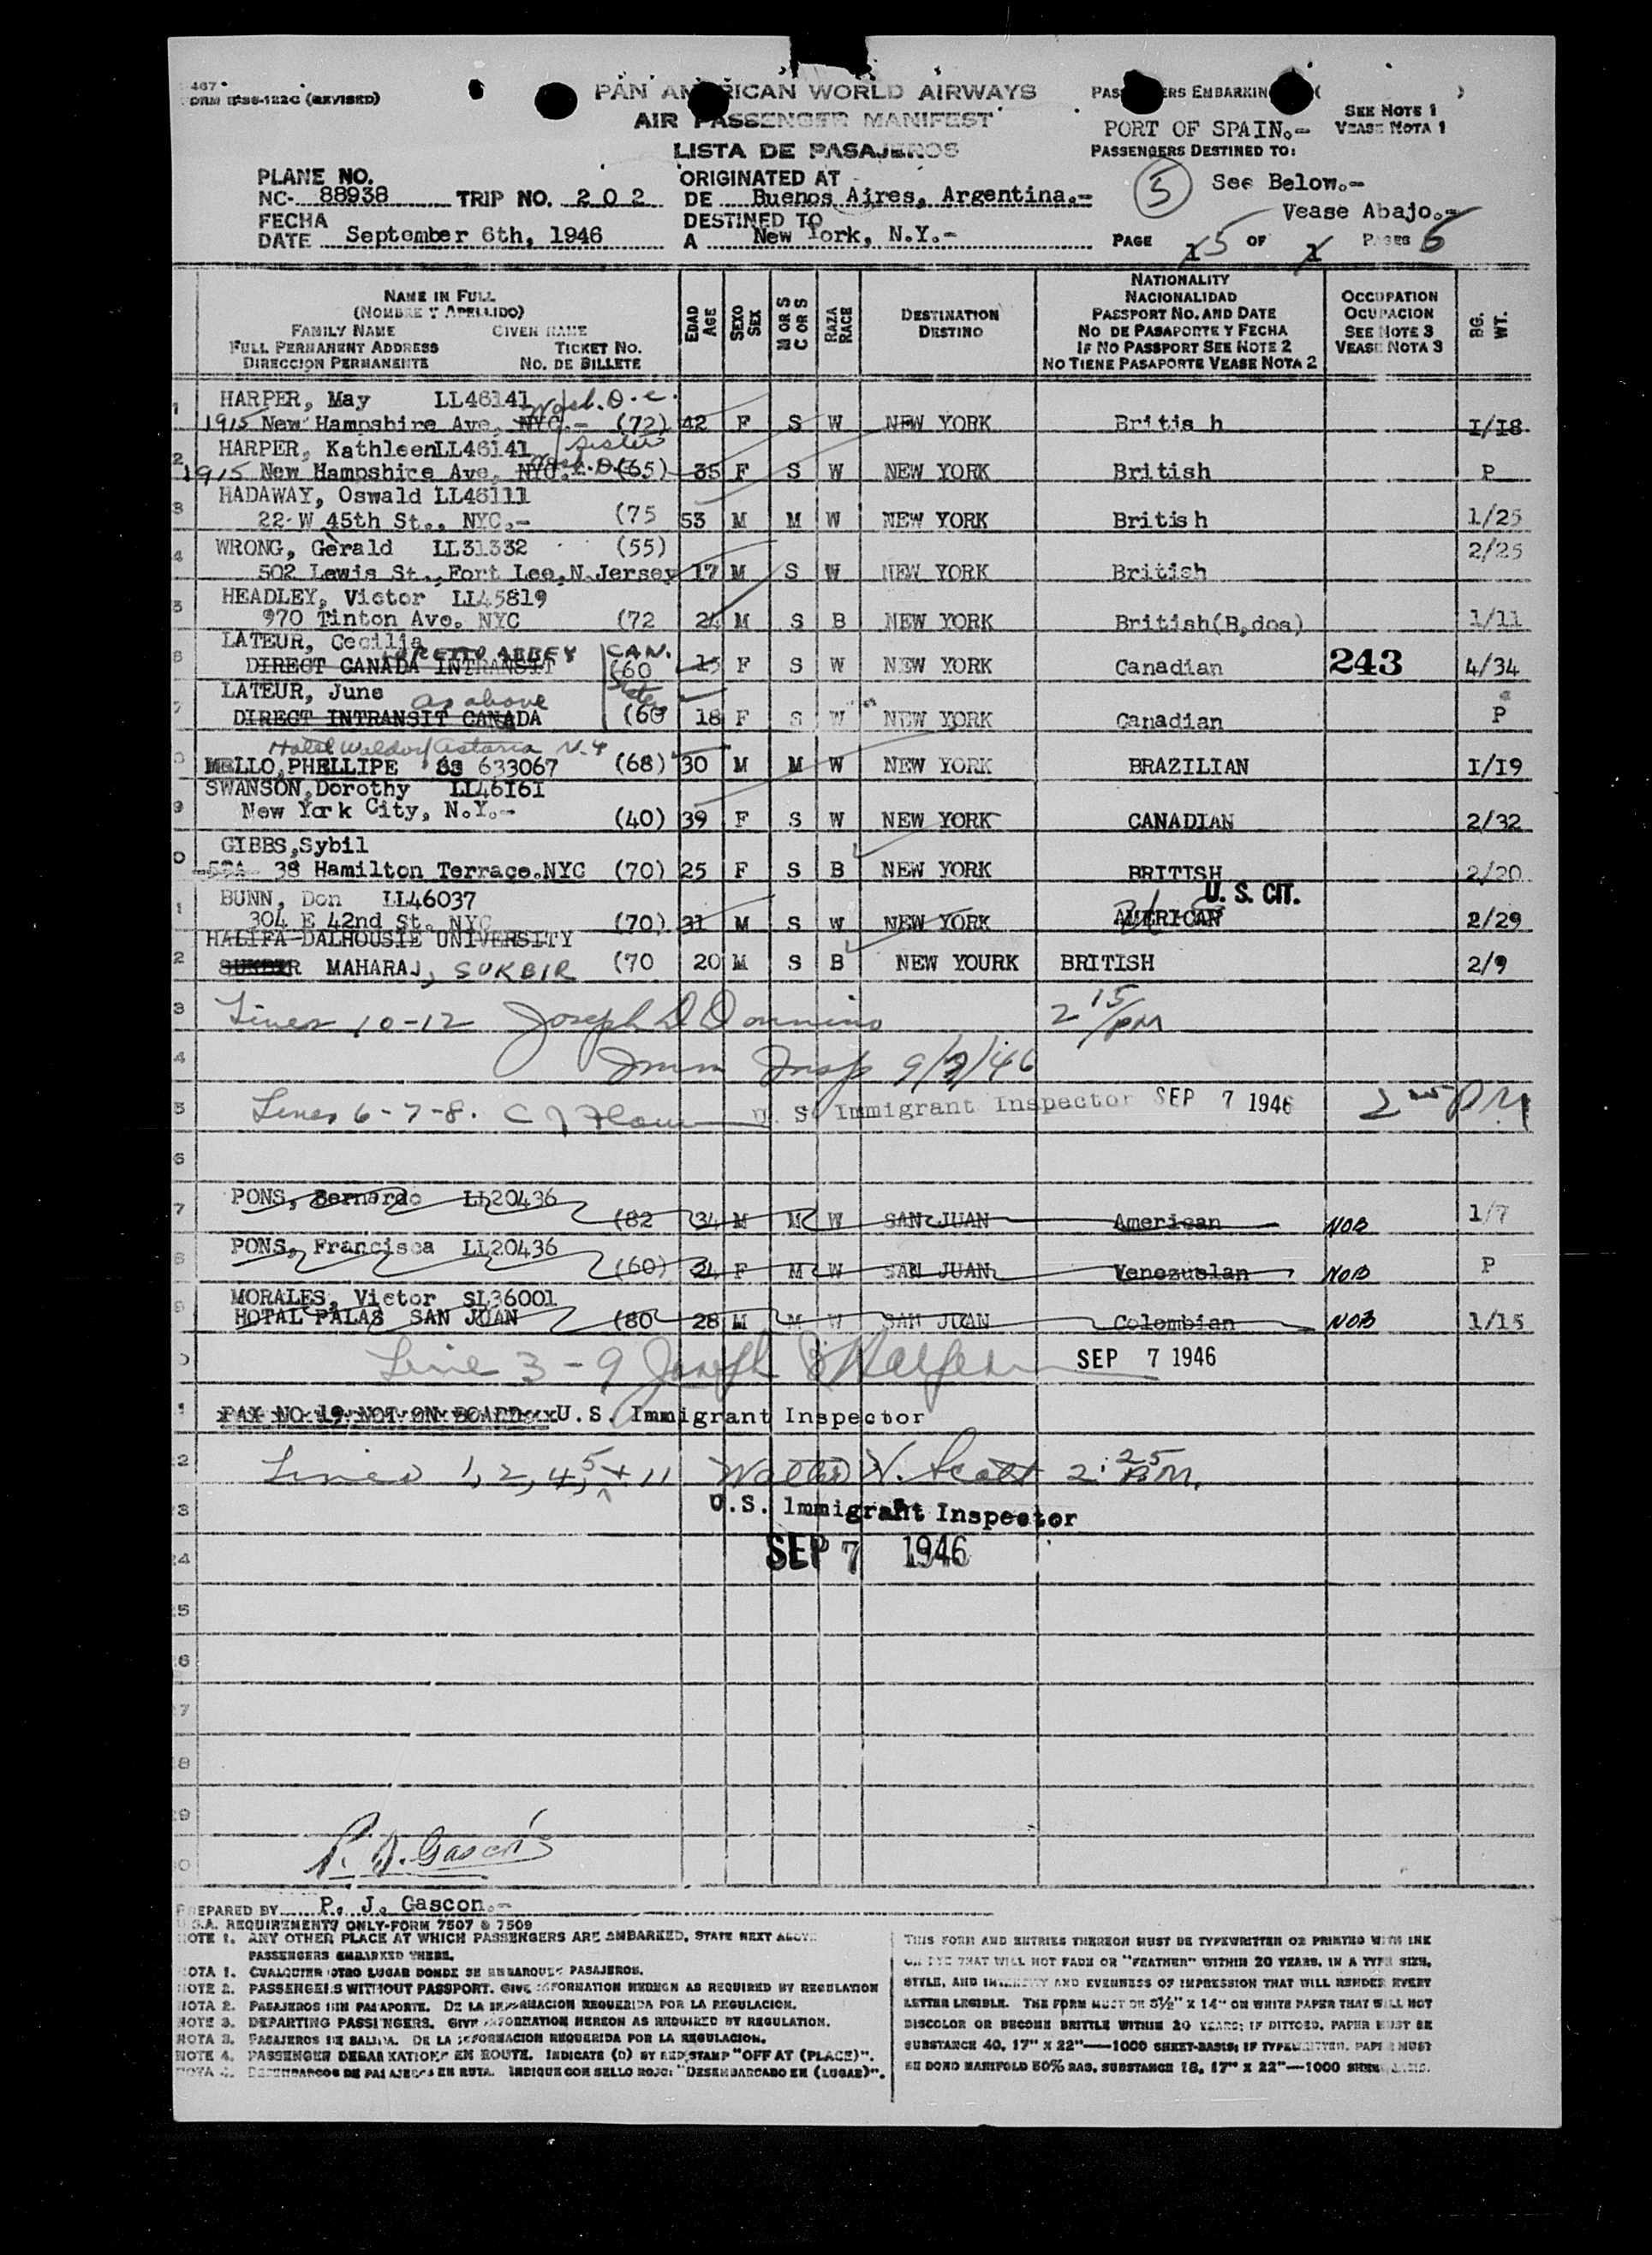 467
FORM IFSS-122C (REVISED)
PAN AMERICAN WORLD AIRWAYS
AIR PASSENGER MANIFEST
LISTA DE PASAJEROS
PASSENGERS EMBARKIN ( )
SEE NOTE 1
VEASE NOTA 1
PORT OF SPAIN.-
PASSENGERS DESTINED TO:
See Below.-
Vease Abajo.-
5
PLANE NO.
NC- 88938 TRIP NO. 202
ORIGINATED AT
DE Buenos Aires, Argentina.-
FECHA
DATE September 6th, 1946
DESTINED TO
A New York, N.Y.-
PAGE 1 5 OF 1 PAGES 6
NAME IN FULL
(NOMBRE Y APELLIDO)
FAMILY NAME GIVEN NAME
FULL PERMANENT ADDRESS TICKET NO.
DIRECCION PERMANENTE NO. DE BILLETE
EDAD AGE
SEXO SEX
M OR S C OR S
RAZA RACE
DESTINATION
DESTINO
NATIONALITY
NACIONALIDAD
PASSPORT NO. AND DATE
NO DE PASAPORTE Y FECHA
IF NO PASSPORT SEE NOTE 2
NO TIENE PASAPORTE VEASE NOTA 2
OCCUPATION
OCUPACION
SEE NOTE 3
VEASE NOTA 3
BG. WT.
1 HARPER, May LL46141 Wash. D.C.
1915 New Hampshire Ave, NYC.- (72) 42 F S W NEW YORK British 1/18
2 HARPER, Kathleen LL46141 Sister
1915 New Hampshire Ave, NYC.- Wash. D.C. (65) 35 F S W NEW YORK British P
3 HADAWAY, Oswald LL46111
22 W 45th St., NYC.- (75 53 M M W NEW YORK British 1/25
4 WRONG, Gerald LL31332 (55) 2/25
502 Lewis St., Fort Lee, N.Jersey 17 M S W NEW YORK British
5 HEADLEY, Victor LL45819
970 Tinton Ave. NYC (72 24 M S B NEW YORK British(B,dos) 1/11
6 LATEUR, Cecilia LORETTO ABBEY CAN.
DIRECT CANADA INTRANSIT (60 15 F S W NEW YORK Canadian 243 4/34
7 LATEUR, June as above Sister
DIRECT INTRANSIT CANADA (60 18 F S W NEW YORK Canadian P
Hotel Waldorf Astoria N.Y
MELLO, PHELLIPE 633067 (68) 30 M M W NEW YORK BRAZILIAN 1/19
SWANSON, Dorothy LL46161
9 New York City, N.Y.- (40) 39 F S W NEW YORK CANADIAN 2/32
GIBBS, Sybil
0 38 Hamilton Terrace.NYC (70) 25 F S B NEW YORK BRITISH 2/20
1 BUNN, Don LL46037 U. S. CIT.
304 E 42nd St. NYC (70) 31 M S W NEW YORK AMERICAN 2/29
HALIFA DALHOUSIE UNIVERSITY
2 SUKBIR MAHARAJ, SUKBIR (70 20 M S B NEW YOURK BRITISH 2/9
3 Lines 10-12 Joseph D 2 15/PM
4 Imm Insp 9/7/46
5 Lines 6-7-8. U. S. Immigrant Inspector SEP 7 1946 PM
6
7 PONS, Bernardo LL20436
(82 34 M M W SAN JUAN American NOB 1/7
8 PONS, Francisca LL20436
(60) 24 F M W SAN JUAN Venezuelan NOB P
9 MORALES, Victor SL36001
HOTAL PALAS SAN JUAN (80 28 M M W SAN JUAN Colombian NOB 1/15
0 Line 3-9 Joseph SEP 7 1946
1 PAX NO 19 NOT ON BOARD U.S. Immigrant Inspector
2 Lines 1, 2, 4, 5 + 11 Walter V. Scott 2:25 P.M.
3 U.S. Immigrant Inspector
4 SEP 7 1946
5
6
7
8
9
P. J. Gascon
0
PREPARED BY P. J. Gascon.-
U.S.A. REQUIREMENTS ONLY-FORM 7507 & 7509
NOTE 1. ANY OTHER PLACE AT WHICH PASSENGERS ARE EMBARKED, STATE NEXT ABOVE
PASSENGERS EMBARKED THERE.
NOTA 1. CUALQUIER OTRO LUGAR DONDE SE EMBARQUEN PASAJEROS.
NOTE 2. PASSENGERS WITHOUT PASSPORT. GIVE INFORMATION HEREON AS REQUIRED BY REGULATION
NOTA 2. PASAJEROS SIN PASAPORTE. DE LA INFORMACION REQUERIDA POR LA REGULACION.
NOTE 3. DEPARTING PASSENGERS. GIVE INFORMATION HEREON AS REQUIRED BY REGULATION.
NOTA 3. PASAJEROS DE SALIDA. DE LA INFORMACION REQUERIDA POR LA REGULACION.
NOTE 4. PASSENGER DEBARKATIONS EN ROUTE. INDICATE (D) BY RED STAMP "OFF AT (PLACE)".
NOTA 4. DESEMBARCOS DE PASAJEROS EN RUTA. INDIQUE CON SELLO ROJO: "DESEMBARCADO EN (LUGAR)".
THIS FORM AND ENTRIES THEREON MUST BE TYPEWRITTEN OR PRINTED WITH INK
OR DYE THAT WILL NOT FADE OR "FEATHER" WITHIN 20 YEARS, IN A TYPE SIZE,
STYLE, AND INTENSITY AND EVENNESS OF IMPRESSION THAT WILL RENDER EVERY
LETTER LEGIBLE. THE FORM MUST BE 8½" X 14" ON WHITE PAPER THAT WILL NOT
DISCOLOR OR BECOME BRITTLE WITHIN 20 YEARS; IF DITTOED, PAPER MUST BE
SUBSTANCE 40, 17" X 22"—1000 SHEET-BASIS; IF TYPEWRITTEN, PAPER MUST
BE BOND MANIFOLD 50% RAG, SUBSTANCE 16, 17" X 22"—1000 SHEET BASIS.